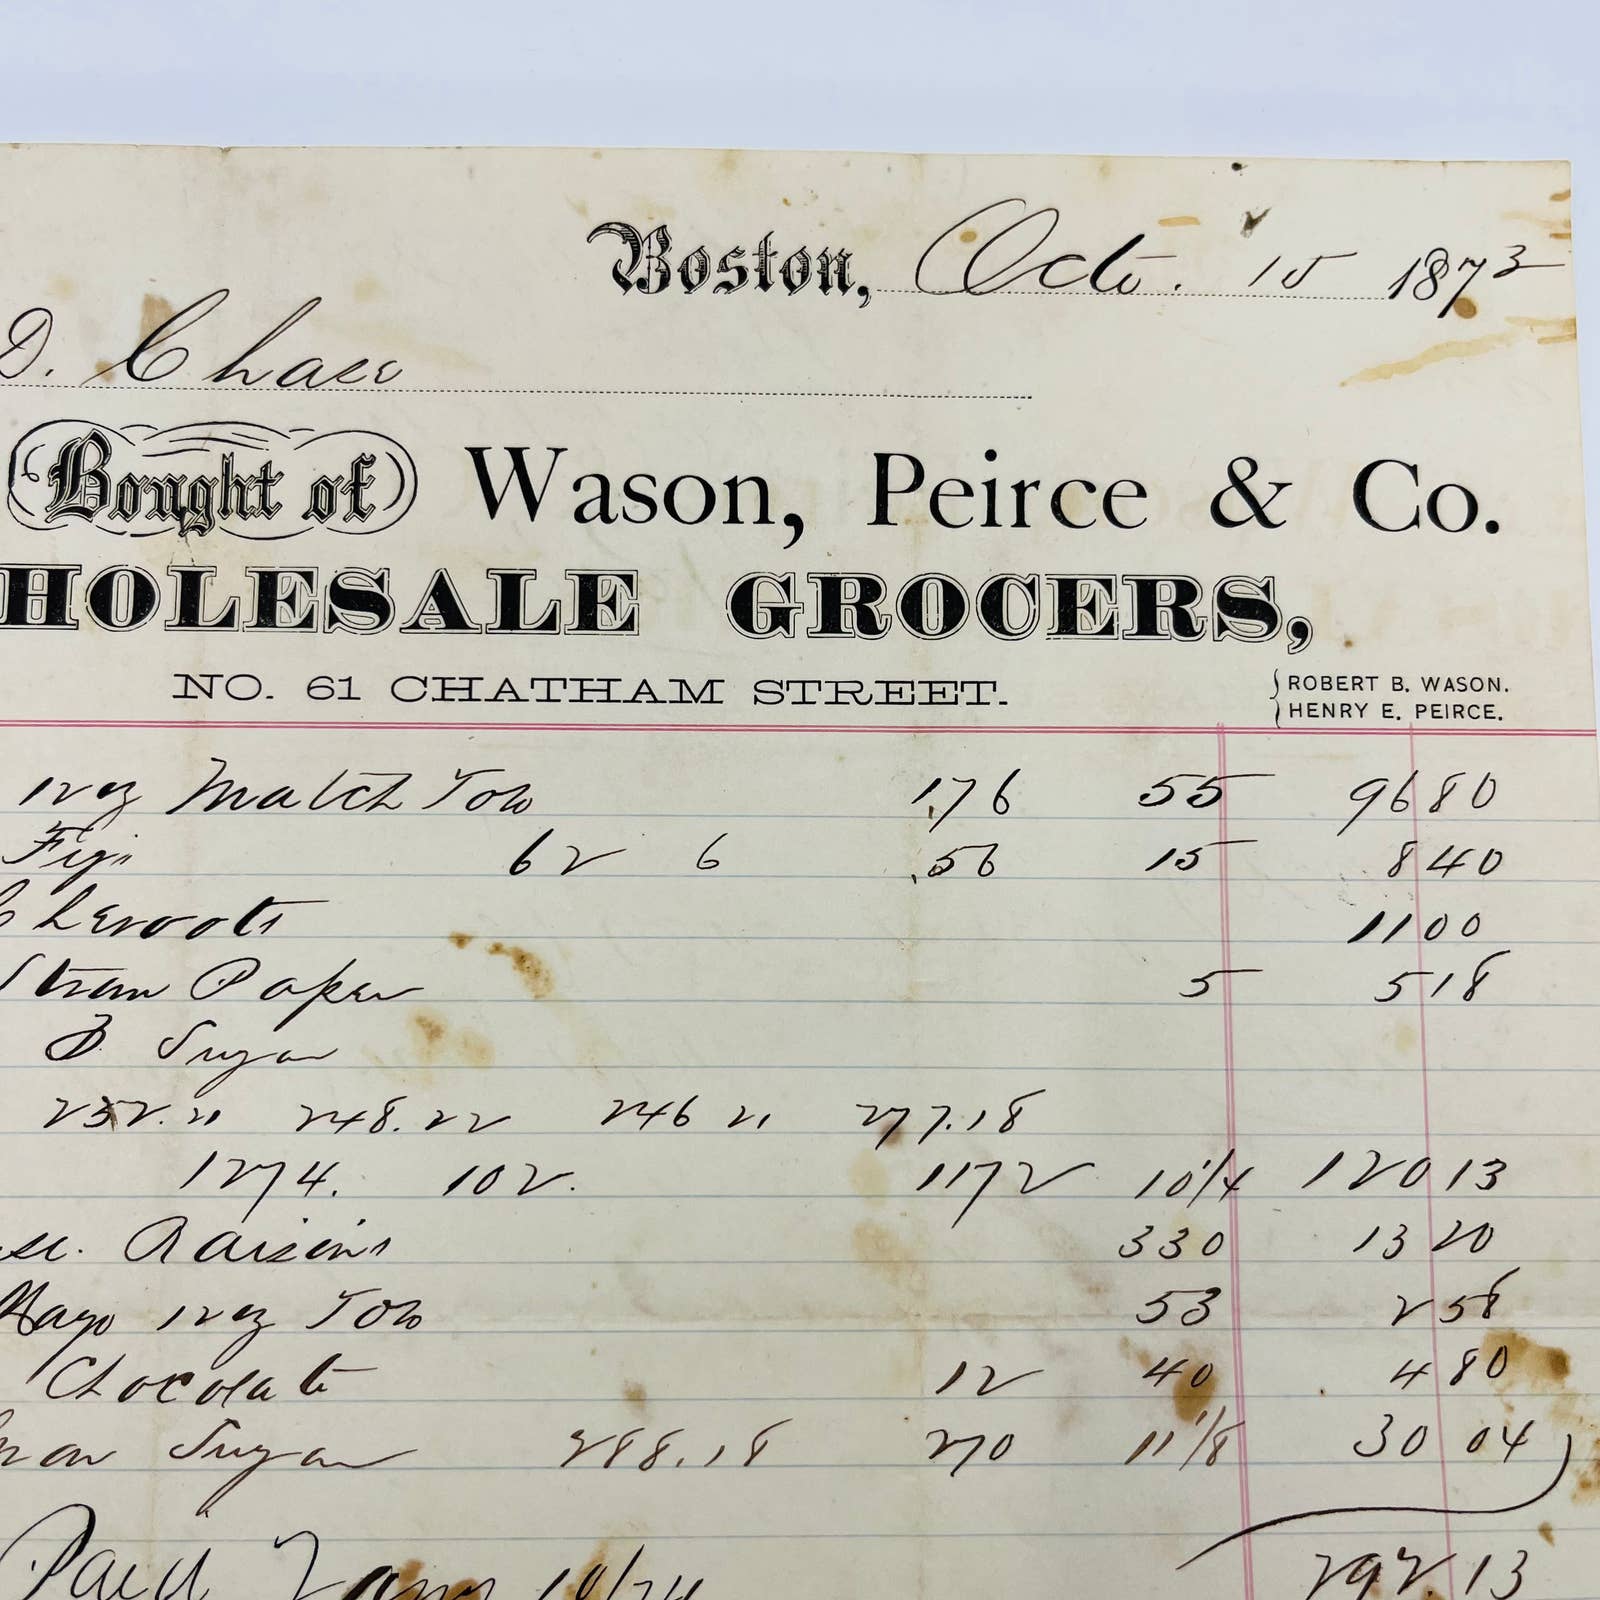 Boston, Octo. 15 1873
D. Chase
Bought of Wason, Peirce & Co.
HOLESALE GROCERS,
NO. 61 CHATHAM STREET.
ROBERT B. WASON.
HENRY E. PEIRCE.
Match Tob 176 55 96 80
Figs 62 6 56 15 8 40
Cheroots 11 00
Straw Paper 5 5 18
B Sugar
252.21 248.22 246 21 277.18
1274. 102. 1172 10 1/4 120 13
Raisins 330 13 20
Mayo Tob 53 2 58
Chocolate 12 40 4 80
Sugar 288.18 270 11 1/8 30 04
Paid 10/24 292.13